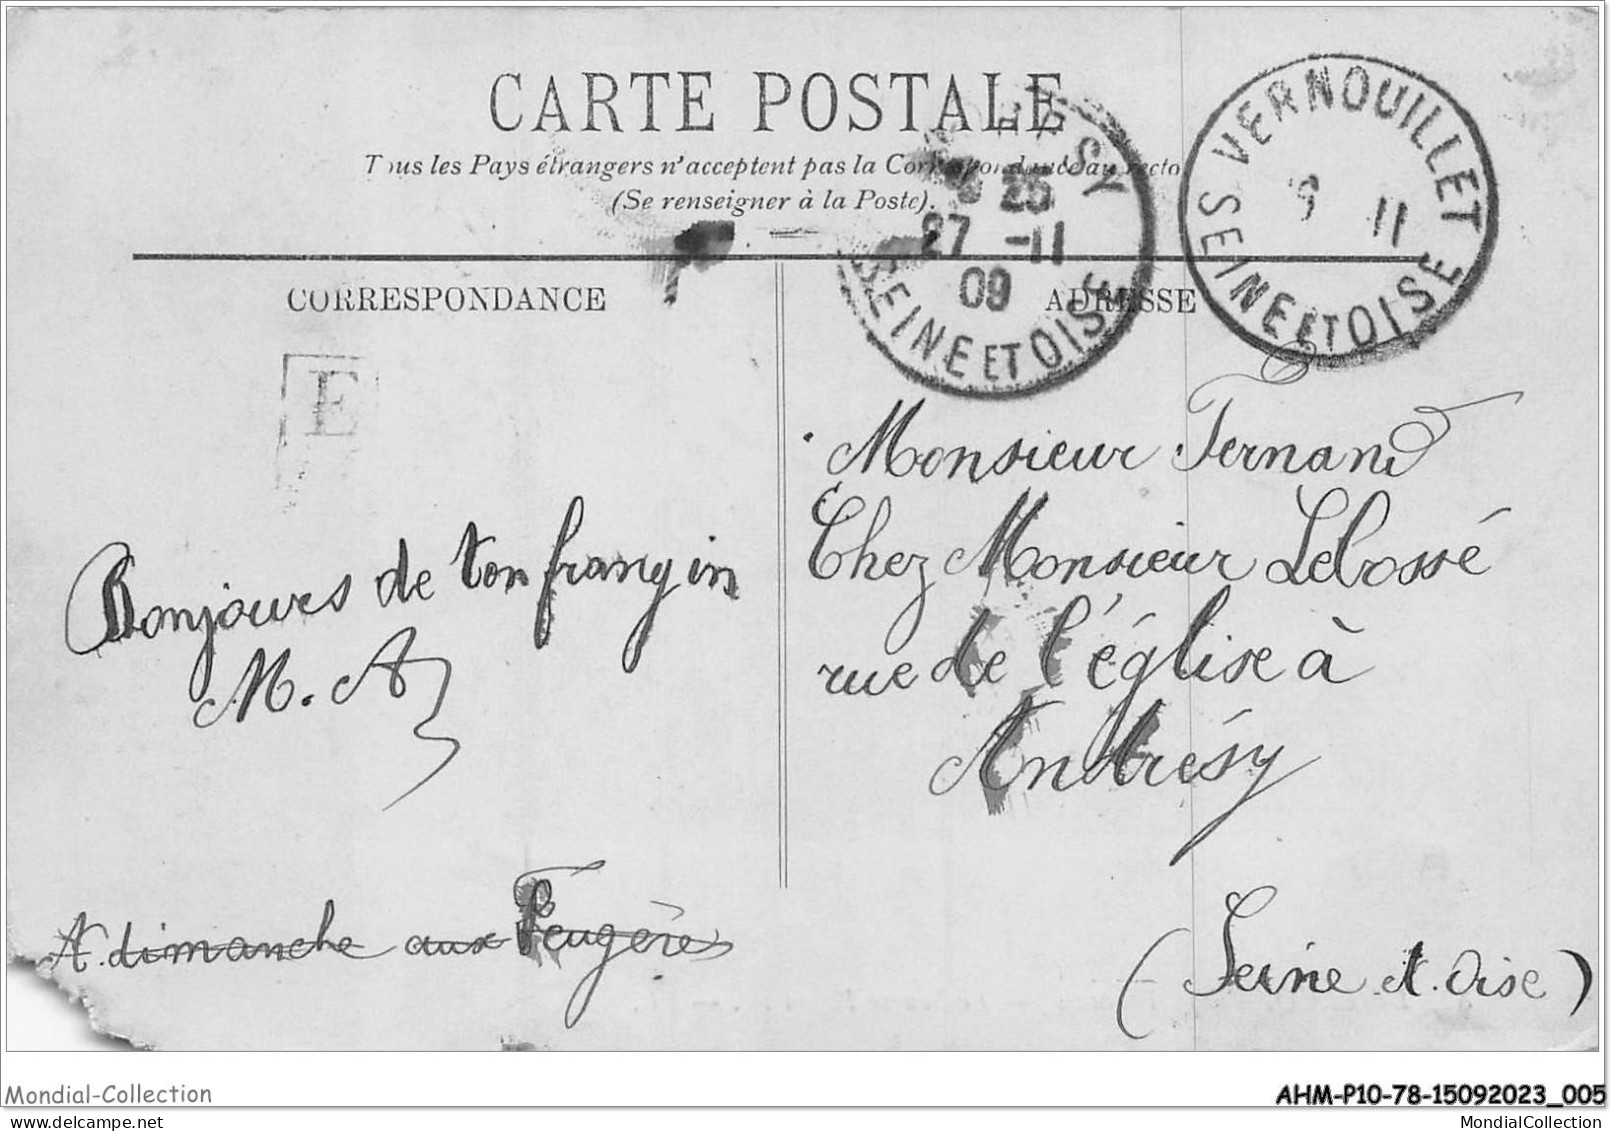 CARTE POSTALE
Tous les Pays étrangers n'acceptent pas la Correspondance au recto
(Se renseigner à la Poste).
CORRESPONDANCE
ADRESSE
VERNOUILLET
11
SEINE ET OISE
25
27 -11
09
SEINE ET OISE
E
Bonjours de ton frangin
M. A
A dimanche aux Feugères
Monsieur Fernand
Chez Monsieur Lebossé
rue de l'église à
Andrésy
(Seine et Oise)
Mondial-Collection
AHM-P10-78-15092023_005
MondialCollection